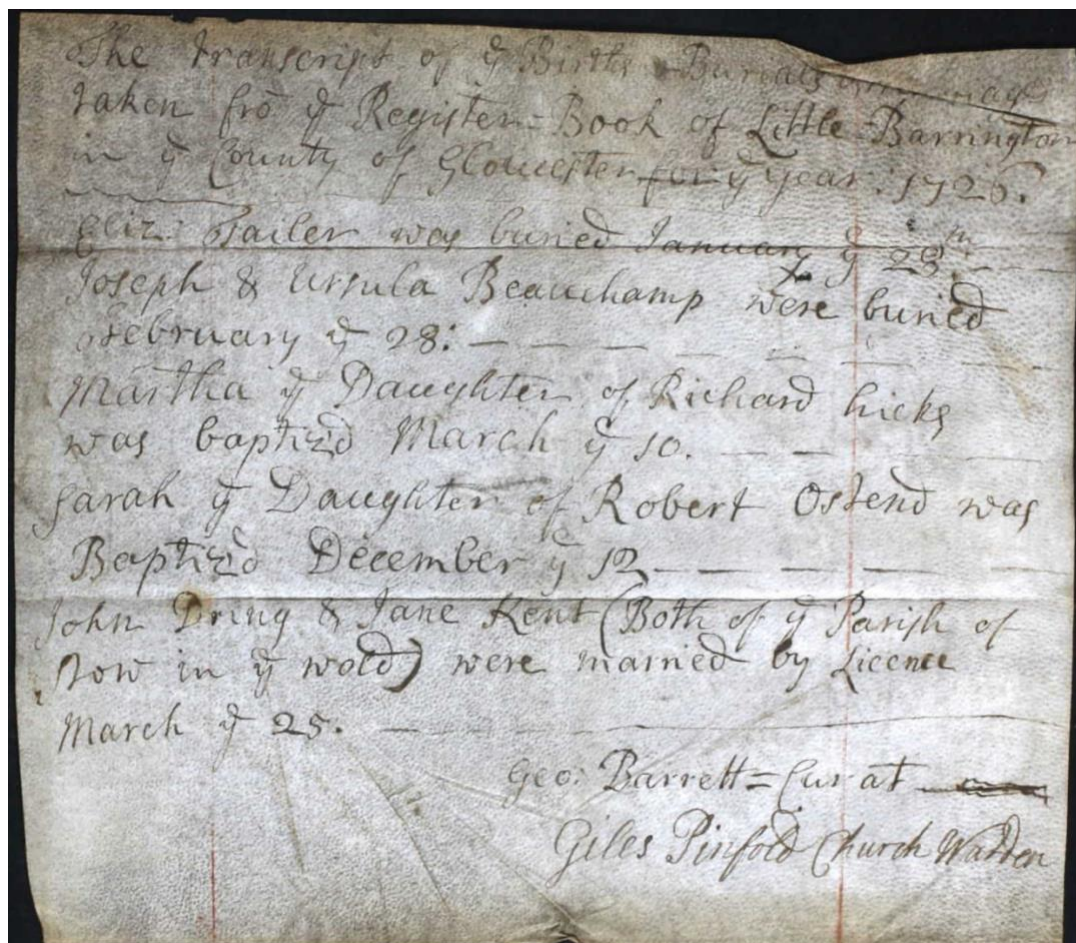 The Transcript of ye Births & Burials
taken frō ye Register=Book of Little Barrington
in ye County of Gloucester for ye year: 1726.
Eliz: Tailer was buried January ye 28th
Joseph & Ursula Beauchamp were buried
February ye 28:
Martha ye Daughter of Richard hicks
was baptizd March ye 10.
Sarah ye Daughter of Robert Ostend was
Baptizd December ye 12
John Dring & Jane Kent (Both of ye Parish of
Stow in ye wold) were married by Licence
March ye 25.
Geo: Barrett=Curat
Giles Pinfold Church Warden